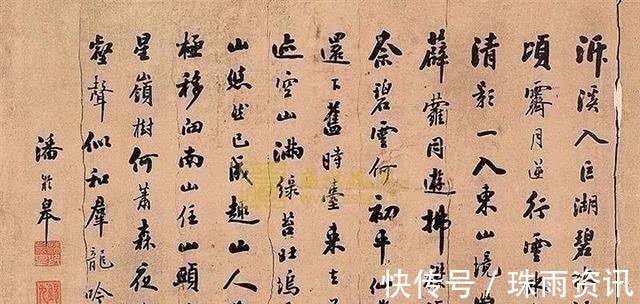 泝溪入巨湖碧
頃霽月逆行雲
清影一入東山境
薜蘿同遊拂
茶碧雲何初平
還下舊時臺來去
近空山滿綠苔旺塢
山悠然已成趣山人
極移向南山住山頭
星嶺樹何蕭森夜
壑聲似和羣龍吟
潘於皋
快传号／珠雨资讯